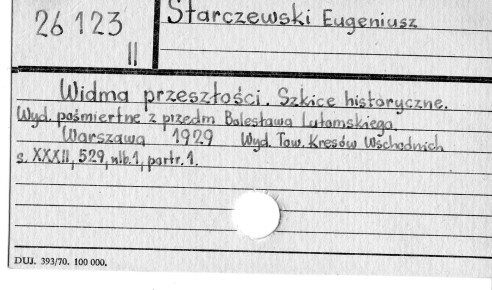 26123
II
Starczewski Eugeniusz
Widma przeszłości. Szkice historyczne.
Wyd. pośmiertne z przedm Bolesława Lutomskiego.
Warszawa 1929 Wyd. Tow. Kresów Wschodnich
s. XXXII, 529, nlb. 1, portr. 1.
DUJ. 393/70. 100 000.